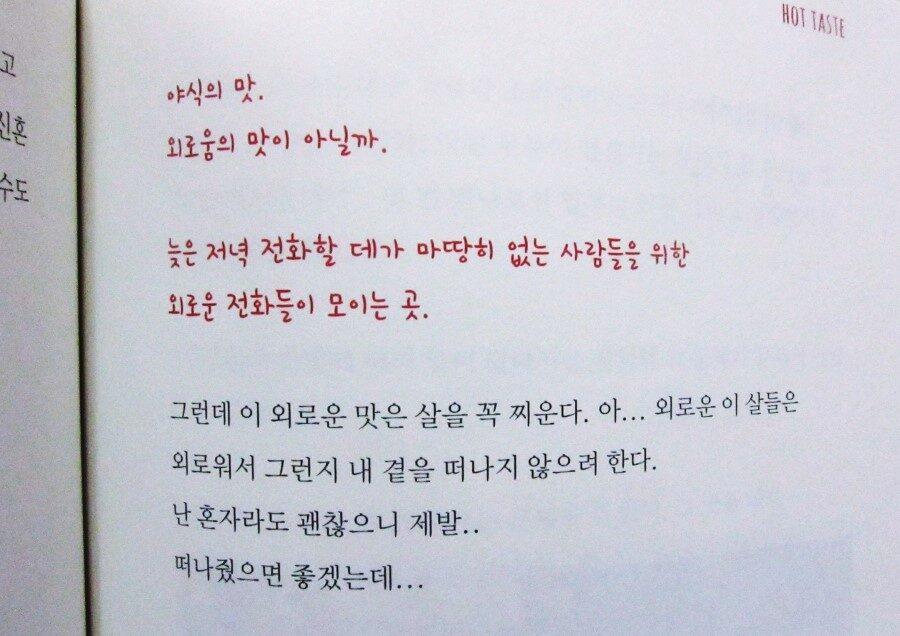 HOT TASTE
고
신혼
수도
야식의 맛.
외로움의 맛이 아닐까.
늦은 저녁 전화할 데가 마땅히 없는 사람들을 위한
외로운 전화들이 모이는 곳.
그런데 이 외로운 맛은 살을 꼭 찌운다. 아... 외로운 이 살들은
외로워서 그런지 내 곁을 떠나지 않으려 한다.
난 혼자라도 괜찮으니 제발..
떠나줬으면 좋겠는데...